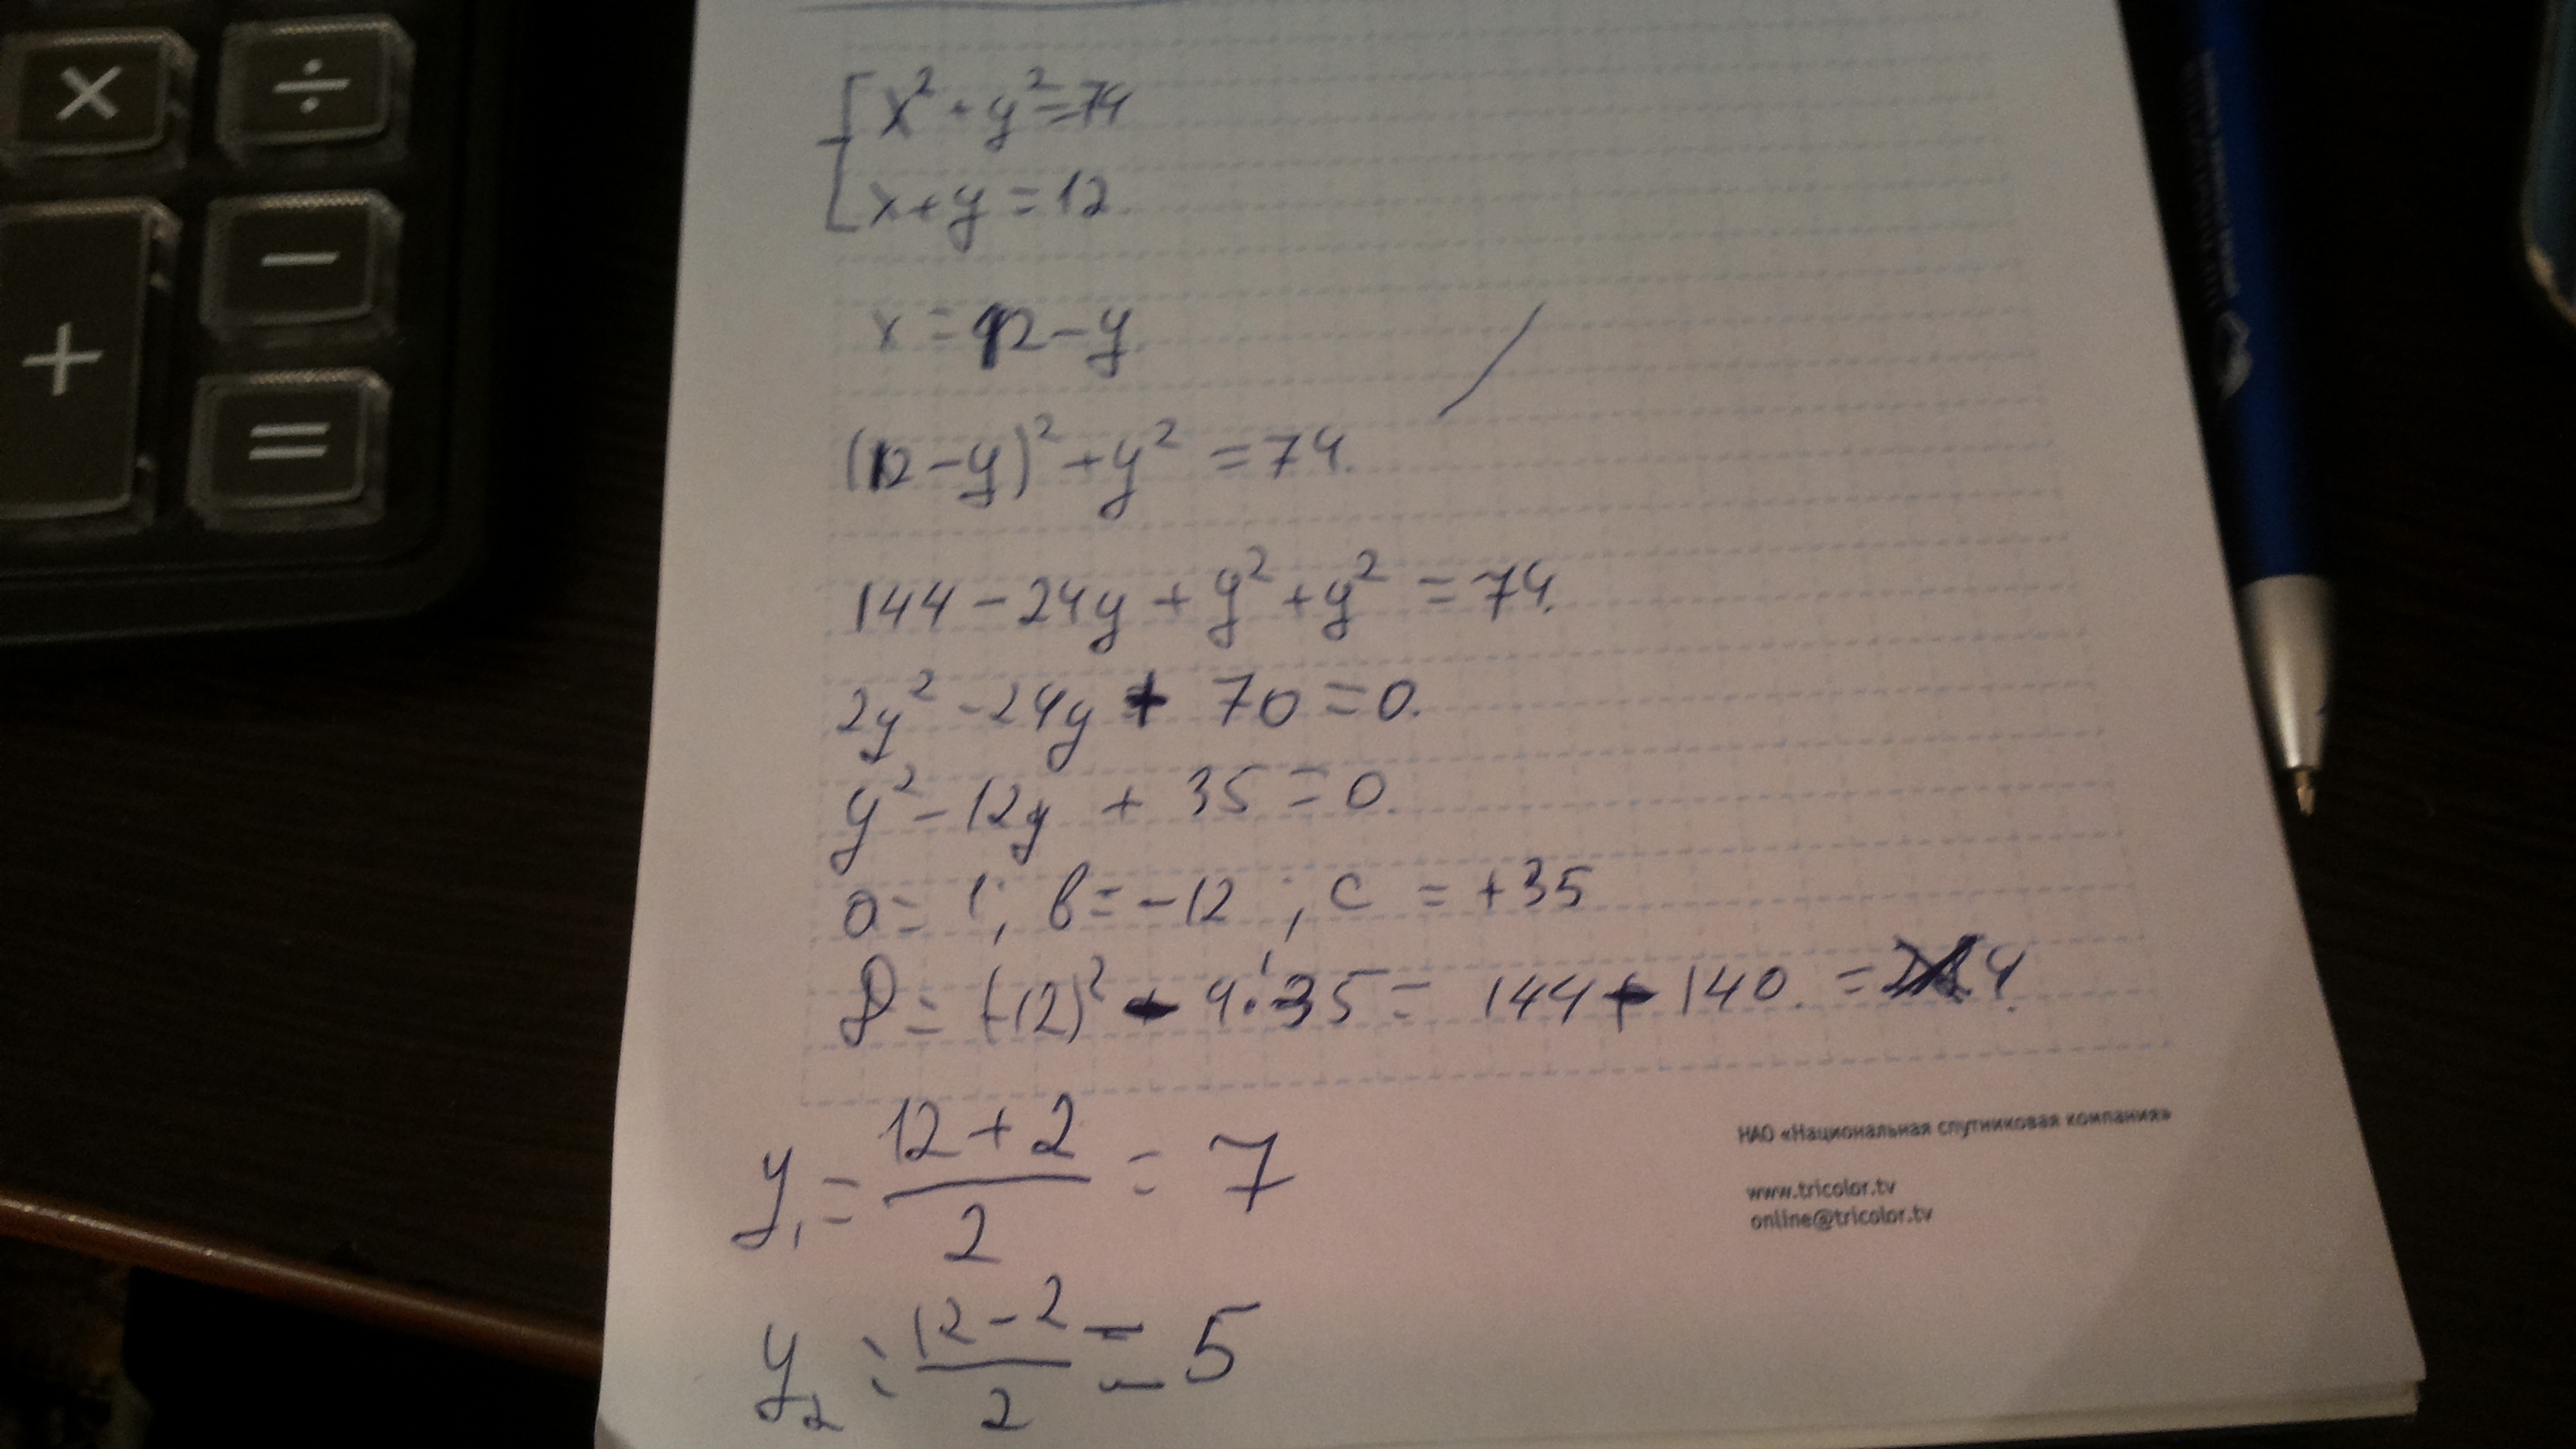 × ÷
−
+
=
x² + y² = 74
x + y = 12
x = 12 - y
(12 - y)² + y² = 74.
144 - 24y + y² + y² = 74.
2y² - 24y + 70 = 0.
y² - 12y + 35 = 0.
a = 1; b = -12; c = +35
D = (-12)² - 4·35 = 144 - 140. = 4.
y₁ = (12 + 2)/2 = 7
y₂ = (12 - 2)/2 = 5
НАО «Национальная спутниковая компания»
www.tricolor.tv
online@tricolor.tv